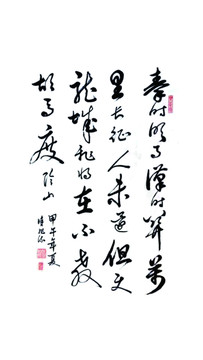 秦时明月汉时关万
里长征人未还但使
龙城飞将在不教
胡马度阴山
甲午年夏